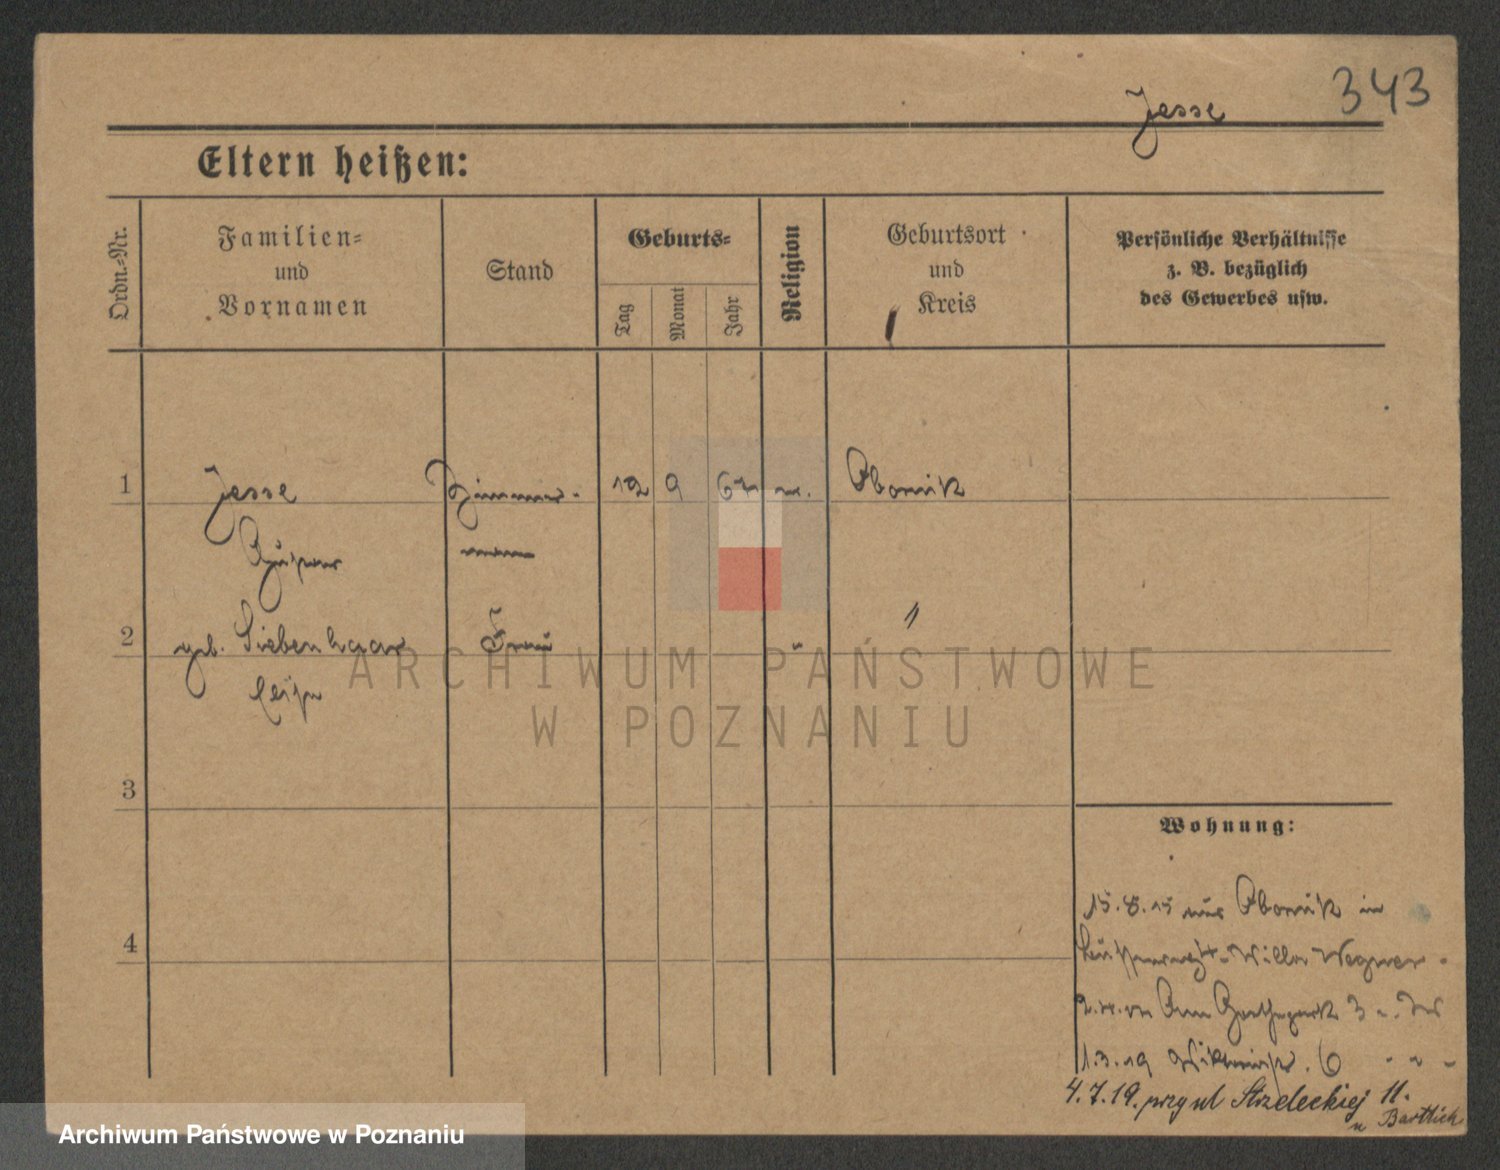 343
Jesse
Eltern heißen:
Ordn.-Nr.
Familien-
und
Vornamen
Stand
Geburts-
Tag
Monat
Jahr
Religion
Geburtsort
und
Kreis
Persönliche Verhältnisse
z. B. bezüglich
des Gewerbes usw.
1 Jesse Zimmer- 12 9 67 Obornik
mann
2 geb. Siebenhaar Frau "
3
4
Wohnung:
15.8.15 aus Obornik in
Villa Wegner
3
1.3.19 6 - " -
4.7.19. przy ul Strzeleckiej 11.
u Bartlich
ARCHIWUM PAŃSTWOWE
W POZNANIU
Archiwum Państwowe w Poznaniu